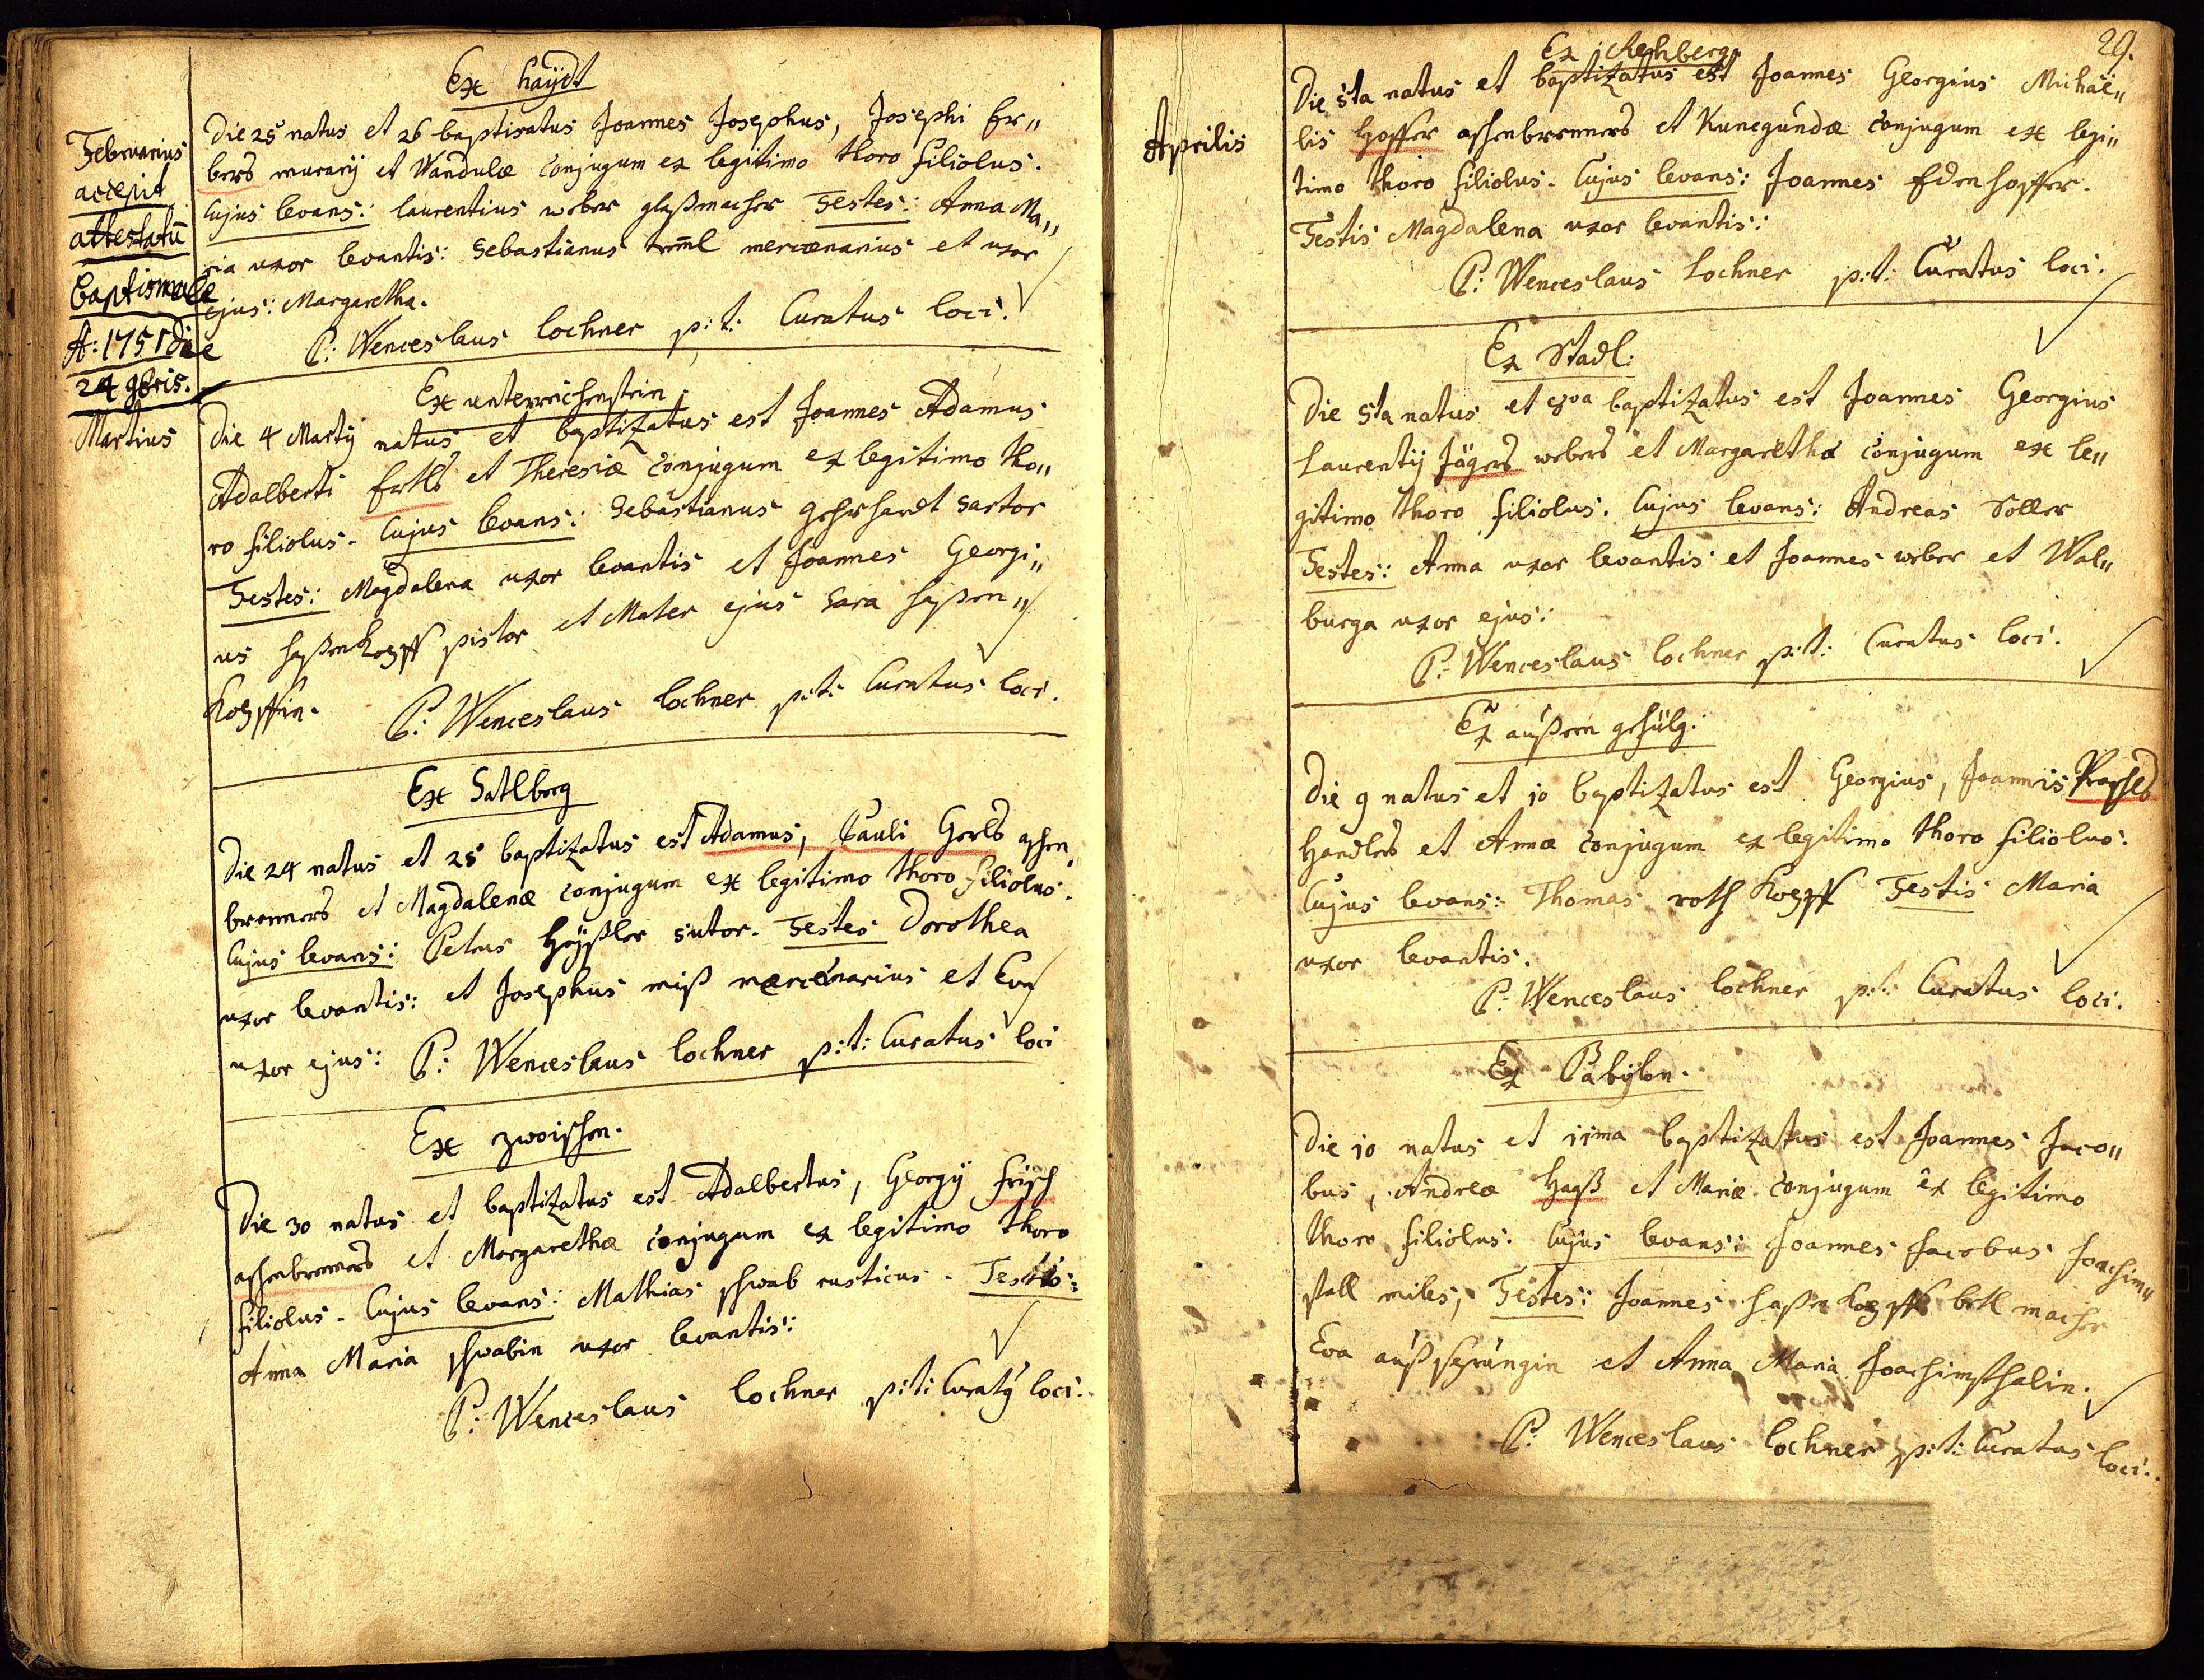 Februarius
accepit
attestatū
baptismale
A: 1751 die
24 9bris.
Martius
Ex Haÿdt
Die 25 natus et 26 baptisatus Joannes Josephus, Josephi Er„
bers murarij et Wandulæ conjugum ex legitimo thoro filiolus.
Cujus levans: laurentius weber glaßmacher Testes: Anna Ma„
ria uxor levantis: Sebastianus mercenarius et uxor
ejus: Margaretha.
P: Wenceslaus lochner p: t: Curatus loci.
Ex unterreichenstein.
Die 4 Martij natus et baptizatus est Joannes Adamus
Adalberti Ertls et Theresiæ conjugum ex legitimo tho„
ro filiolus. Cujus levans: Sebastianus gehrhardt sartor
Testes: Magdalena uxor levantis et Joannes Georgi„
us haßenkopff pistor et Mater ejus Sara haßen„
kopffin.
P: Wenceslaus lochner p: t: Curatus loci.
Ex Satlberg
Die 24 natus et 25 baptizatus est Adamus, Pauli Gerls aschen
brenners et Magdalenæ conjugum ex legitimo thoro filiolus.
Cujus levans: Petrus Heÿßler sutor. Testes Dorothea
uxor levantis: et Josephus miß mercenarius et Eva
uxor ejus: P: Wenceslaus lochner p: t: Curatus loci
Ex zwoischen.
Die 30 natus et baptizatus est Adalbertus, Georgij Frisch
aschenbrenners et Margarethæ conjugum ex legitimo thoro
filiolus. Cujus levans: Mathias schwab rusticus. Testis:
Anna Maria schwabin uxor levantis:
P: Wenceslaus lochner p: t: Curatÿ loci.
29.
Aprilis
Ex Rehberg
Die 5ta natus et baptizatus est Joannes Georgius Michae„
lis Hoffer aschenbrenners et Kunegundæ conjugum ex legi„
timo thoro filiolus. Cujus levans: Joannes Edenhopffer.
Testis Magdalena uxor levantis:
P: Wenceslaus Lochner p: t: Curatus loci.
Ex Stadl.
Die 5ta natus et baptizatus est Joannes Georgius
Laurentij Jägers webers et Margarethæ conjugum ex le„
gitimo thoro filiolus. Cujus levans: Andreas Soller
Testes: Anna uxor levantis et Joannes weber et Wal„
burga uxor ejus:
P: Wenceslaus lochner p: t: Curatus loci.
Ex außern gehülg.
Die 9 natus et 10 baptizatus est Georgius, Joannis
Handlers et Annæ conjugum ex legitimo thoro filiolus:
Cujus levans: Thomas rothkopff Testis Maria
uxor levantis.
P: Wenceslaus lochner p: t: Curatus loci.
Ex Babylon.
Die 10 natus et 11ma baptizatus est Joannes Jaco„
bus, Andreæ Hayß et Mariæ conjugum ex legitimo
thoro filiolus: Cujus levans: Joannes Jacobus Joachim„
stall miles, Testes: Joannes haßenkopff betl macher
Eva außsprüngin et Anna Maria Joachimsthalin.
P: Wenceslaus lochner p: t: Curatus loci.